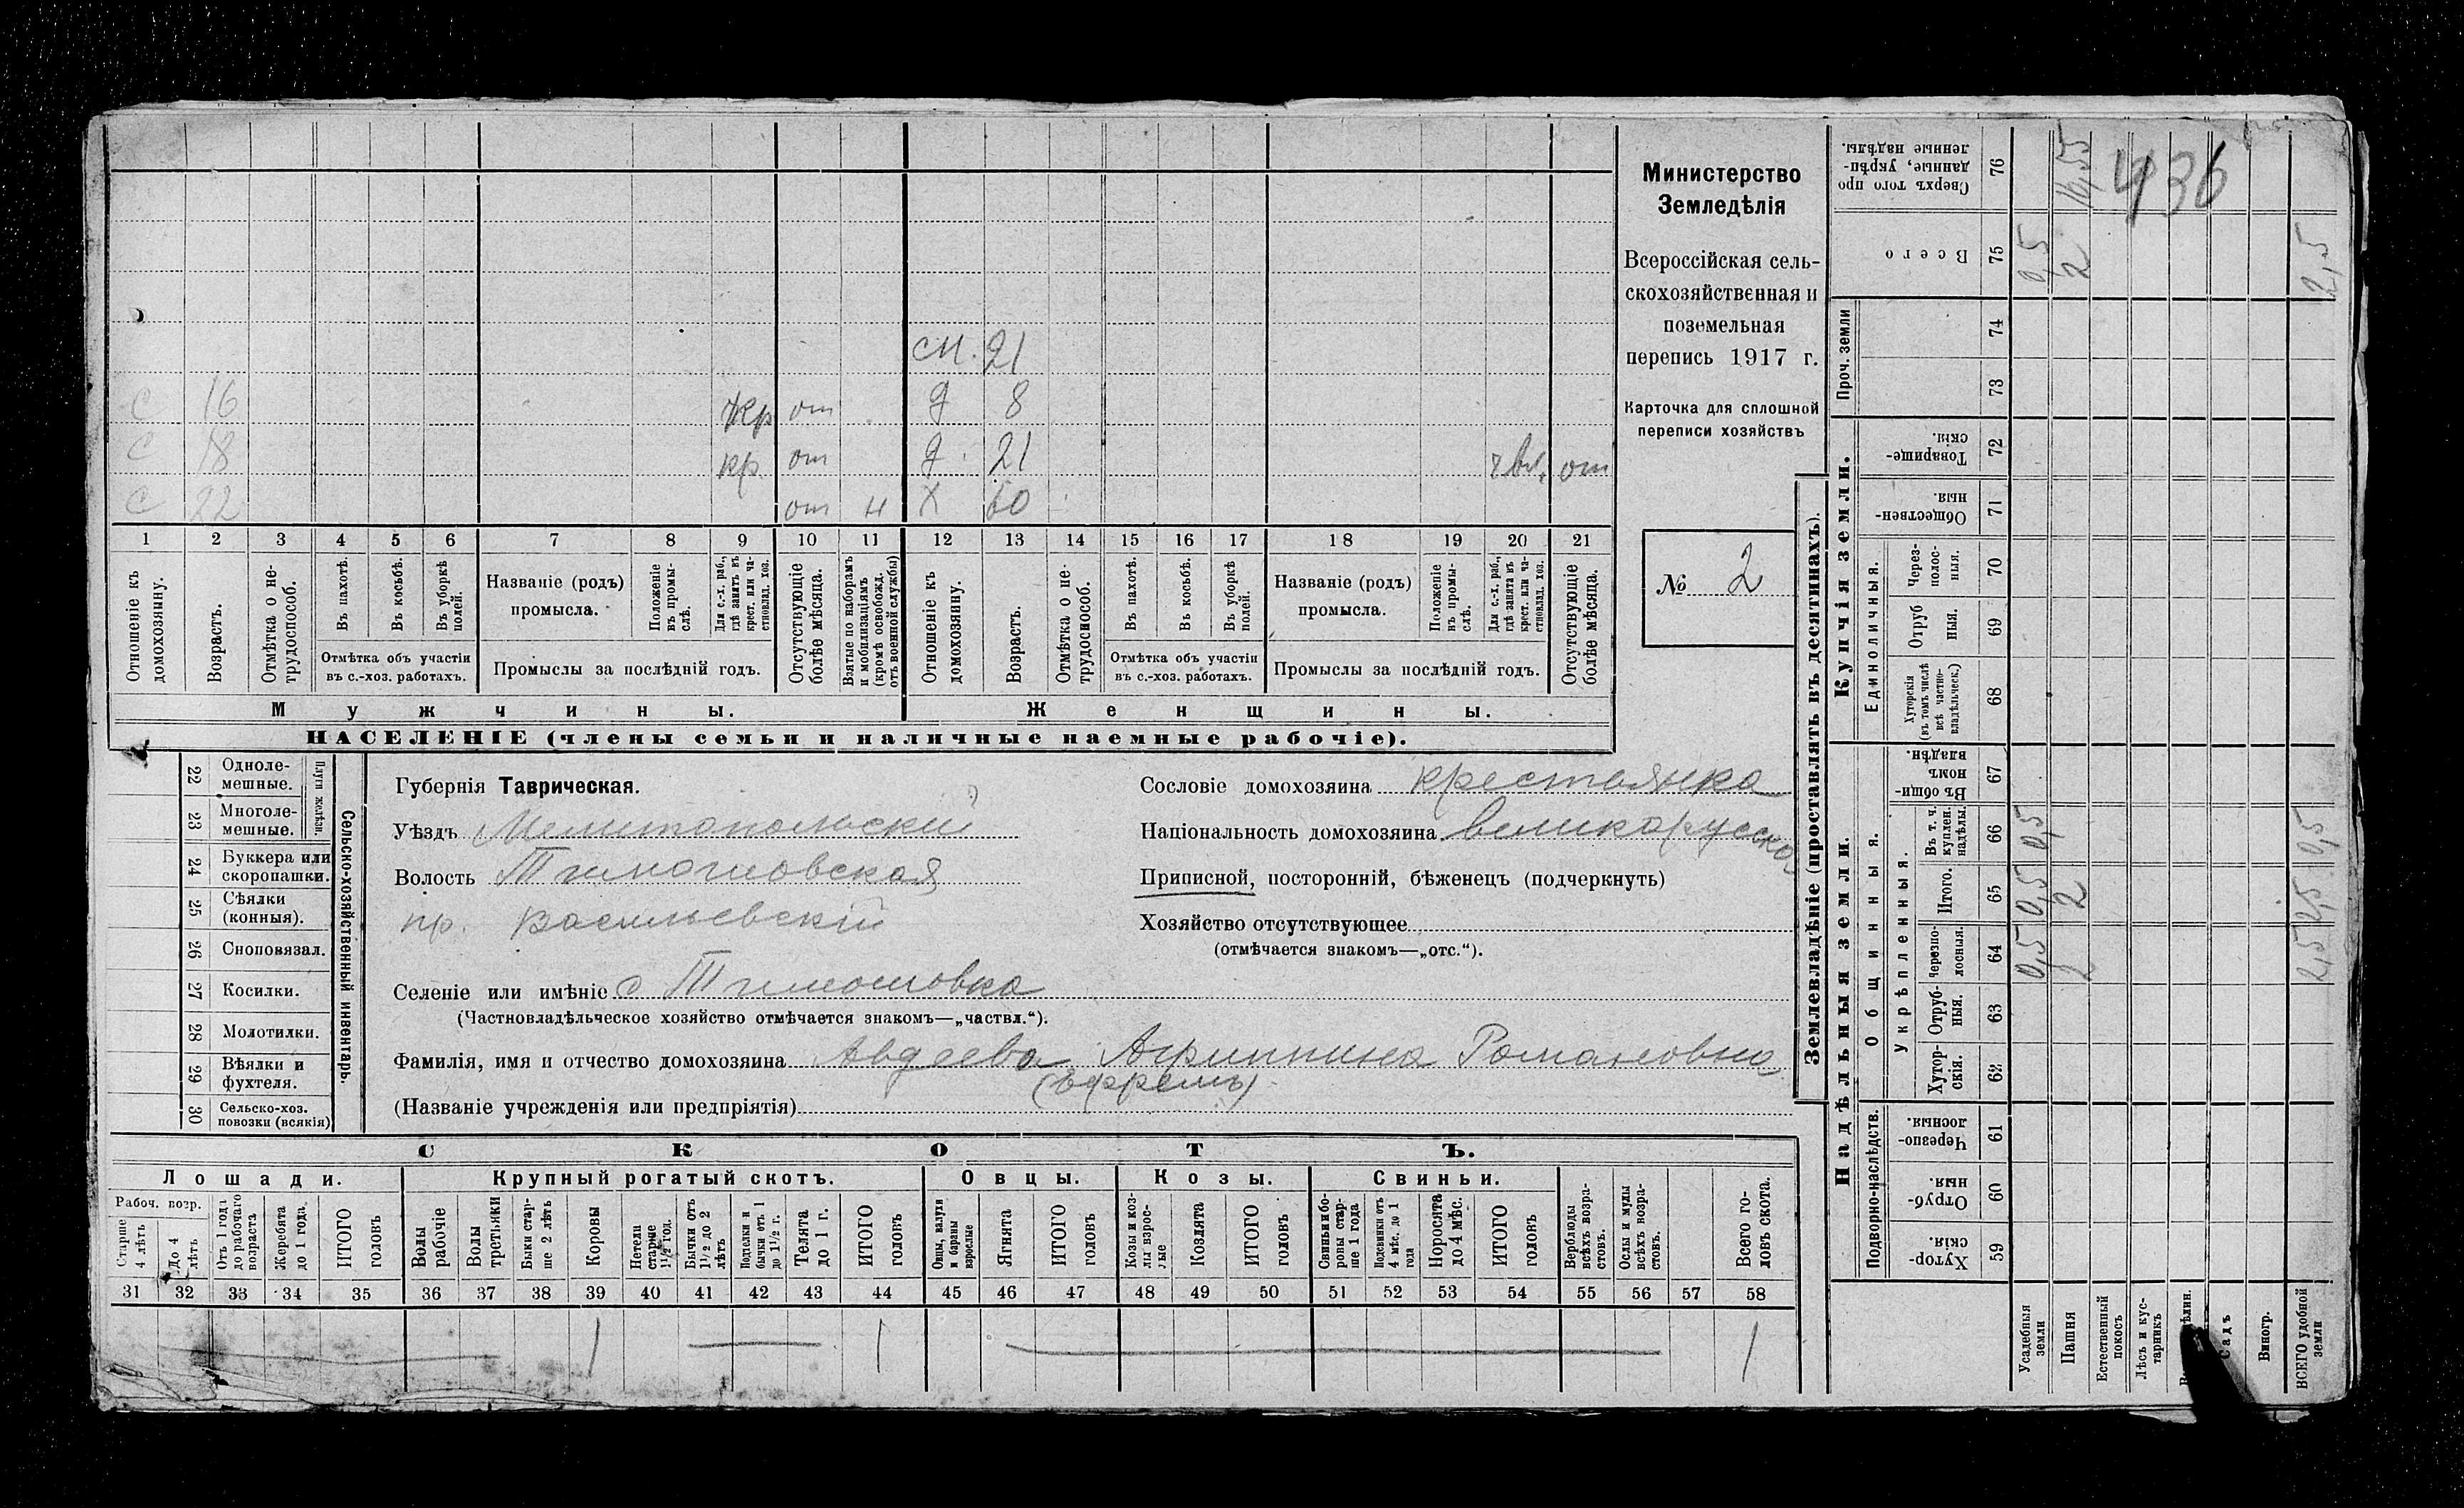 436
Министерство
Земледѣлія
Всероссійская сель-
скохозяйственная и
поземельная
перепись 1917 г.
Карточка для сплошной
переписи хозяйствъ
№ 2
см. 21
с 16 кр от д 8
с 18 кр от д 21 от
с 22 от н х 60
1 2 3 4 5 6 7 8 9 10 11 12 13 14 15 16 17 18 19 20 21
Отношеніе къ домохозяину.
Возрастъ.
Отмѣтка о не-трудоспособ.
Въ пахотѣ.
Въ косьбѣ.
Въ уборкѣ полей.
Отмѣтка объ участіи
въ с.-хоз. работахъ.
Названіе (родъ)
промысла.
Положеніе въ промы-слѣ.
Для с.-х. раб., гдѣ занятъ въ крест. или ча-стновлад. хоз.
Промыслы за послѣдній годъ.
Отсутствующіе болѣе мѣсяца.
Взятые по наборамъ и мобилизаціямъ (кромѣ освобожд. отъ военной службы)
Отношеніе къ домохозяину.
Возрастъ.
Отмѣтка о не-трудоспособ.
Въ пахотѣ.
Въ косьбѣ.
Въ уборкѣ полей.
Отмѣтка объ участіи
въ с.-хоз. работахъ.
Названіе (родъ)
промысла.
Положеніе въ промы-слѣ.
Для с.-х. раб., гдѣ занятъ въ крест. или ча-стновлад. хоз.
Промыслы за послѣдній годъ.
Отсутствующіе болѣе мѣсяца.
Мужчины.
Женщины.
НАСЕЛЕНІЕ (члены семьи и наличные наемные рабочіе).
22 Одноле-мешные.
23 Многоле-мешные.
Плуги желѣзн.
24 Буккера или скоропашки.
25 Сѣялки (конныя).
26 Сноповязал.
27 Косилки.
28 Молотилки.
29 Вѣялки и фухтеля.
30 Сельско-хоз. повозки (всякія)
Сельско-хозяйственный инвентарь.
Губернія Таврическая.
Уѣздъ Мелитопольскій
Волость Тимошовская
пр. Васильевскій
Селеніе или имѣніе с Тимошовка
(Частновладѣльческое хозяйство отмѣчается знакомъ—„частвл.“).
Фамилія, имя и отчество домохозяина Авдеева Агриппина Романовна
(Ефремъ)
(Названіе учрежденія или предпріятія)
Сословіе домохозяина крестьянка
Національность домохозяина великорусска
Приписной, посторонній, бѣженецъ (подчеркнуть)
Хозяйство отсутствующее
(отмѣчается знакомъ—„отс.“).
СКОТЪ.
Лошади. Крупный рогатый скотъ. Овцы. Козы. Свиньи.
Рабоч. возр.
Старше 4 лѣтъ
До 4 лѣтъ
Отъ 1 года до рабочаго возраста
Жеребята до 1 года.
ИТОГО головъ
Волы рабочіе
Волы третьяки
Быки стар-ше 2 лѣтъ
Коровы
Нетели старше 1½ год.
Бычки отъ 1½ до 2 лѣтъ
Подтелки и бычки отъ 1 до 1½ г.
Телята до 1 г.
ИТОГО головъ
Овцы, валухи и бараны взрослые
Ягнята
ИТОГО головъ
Козы и коз-лы взрос-лые
Козлята
ИТОГО головъ
Свиньи и бо-ровы стар-ше 1 года
Подсвинки отъ 4 мѣс. до 1 года
Поросята до 4 мѣс.
ИТОГО головъ
Верблюды всѣхъ возра-стовъ.
Ослы и мулы всѣхъ возра-стовъ.
Всего го-ловъ скота.
31 32 33 34 35 36 37 38 39 40 41 42 43 44 45 46 47 48 49 50 51 52 53 54 55 56 57 58
1 1 1
Землевладѣніе (проставлять въ десятинахъ).
Надѣльныя земли.
Купчія земли.
Проч. земли
Подворно-наслѣдств.
Общинныя.
Укрѣпленныя.
Единоличныя.
Сверхъ того про данные, укрѣп-ленные надѣлы. 76 14,55
Всего 75 0,5 2 2,5
74
73
Товарище-скія. 72
Обществен-ныя. 71
Через-полос-ныя. 70
Отруб ныя. 69
Хуторскія (въ томъ числѣ всѣ частно-владѣльческ.) 68
Въ общи-номъ владѣн. 67
Въ т. ч. куплен. надѣлы. 66 0,5 0,5
Итого. 65 0,5 2 2,5
Черезпо-лосныя. 64 0,5 2 2,5
Отруб-ныя. 63
Хутор-скія. 62
Черезпо-лосныя. 61
Отруб-ныя. 60
Хутор-скія. 59
Усадебныя земли
Пашня
Естественный покосъ
Лѣсъ и кус-тарникъ
Садъ
Виногр.
ВСЕГО удобной земли